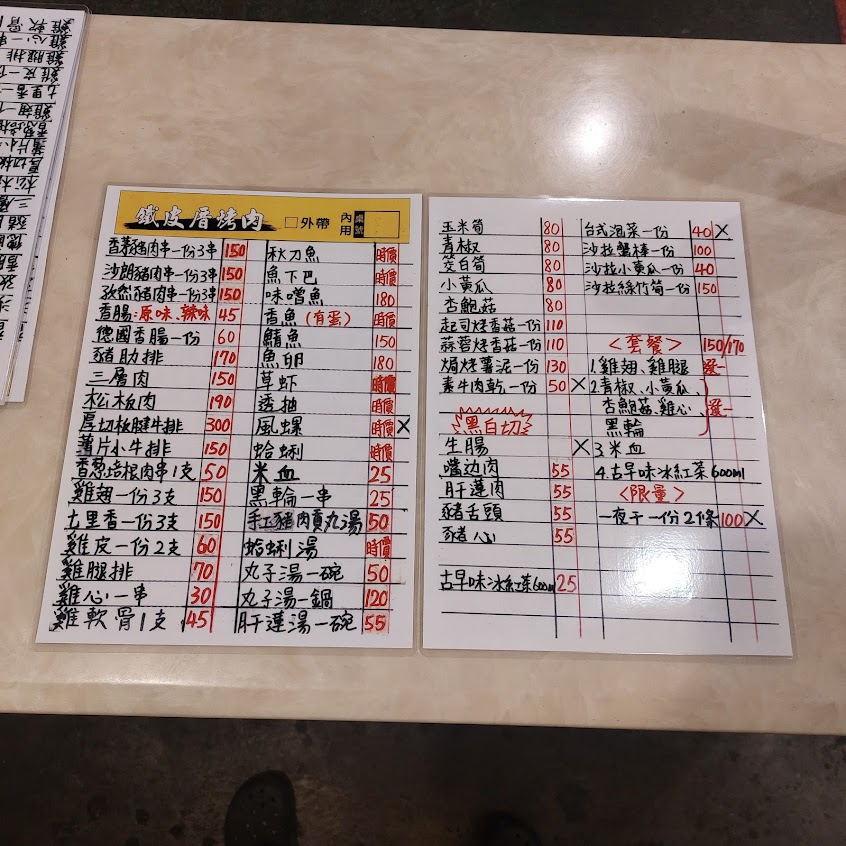 鐵皮厝烤肉 □外帶 內用 桌號
香茅豬肉串一份3串 150
沙朗豬肉串一份3串 150
孜然豬肉串一份3串 150
香腸:原味、辣味 45
德國香腸一份 60
豬肋排 170
三層肉 150
松板肉 190
厚切板腱牛排 300
薄片小牛排 150
香蔥培根肉串1支 50
雞翅一份3支 150
七里香一份3支 150
雞皮一份2支 60
雞腿排 70
雞心一串 30
雞軟骨1支 45
秋刀魚 時價
魚下巴 時價
味噌魚 180
香魚(有蛋) 時價
鯖魚 150
魚卵 180
草虾 時價
透抽 時價
風螺 時價 X
蛤蜊 時價
米血 25
黑輪一串 25
手工豬肉貢丸湯 50
蛤蜊湯 時價
丸子湯一碗 50
丸子湯一鍋 120
肝蓮湯一碗 55
玉米筍 80
青椒 80
茭白筍 80
小黃瓜 80
杏鮑菇 80
起司烤香菇一份 110
蒜蓉烤香菇一份 110
焗烤薯泥一份 130
素牛肉乾一份 50 X
黑白切
生腸 X
嘴边肉 55
肝蓮肉 55
豬舌頭 55
豬心 55
古早味冰紅茶600ml 25
台式泡菜一份 40 X
沙拉蟹棒一份 100
沙拉小黃瓜一份 40
沙拉綠竹筍一份 150
<套餐> 150/170
1.雞翅、雞腿 選一
2.青椒、小黃瓜、
杏鮑菇、雞心、選一
黑輪
3.米血
4.古早味冰紅茶600ml
<限量>
一夜干一份2條 100 X